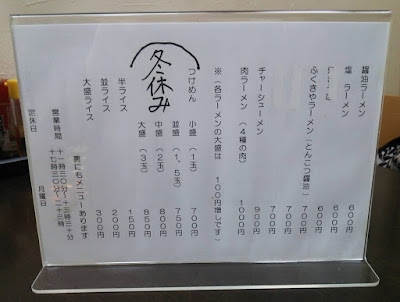 醤油ラーメン 600円
塩 ラーメン 600円
600円
ふくきやラーメン(とんこつ醤油) 700円
700円
チャーシューメン 900円
肉ラーメン (4種の肉) 1000円
※(各ラーメンの大盛は 100円増しです)
つけめん 小盛 (1玉) 700円
並盛 (1,5玉) 750円
中盛 (2玉) 800円
大盛 (3玉) 850円
冬休み
半ライス 150円
並ライス 200円
大盛ライス 300円
裏にもメニューあります
営業時間 十一時三〇分〜十三時三十分
十七時三〇分〜二十三時
定休日 月曜日